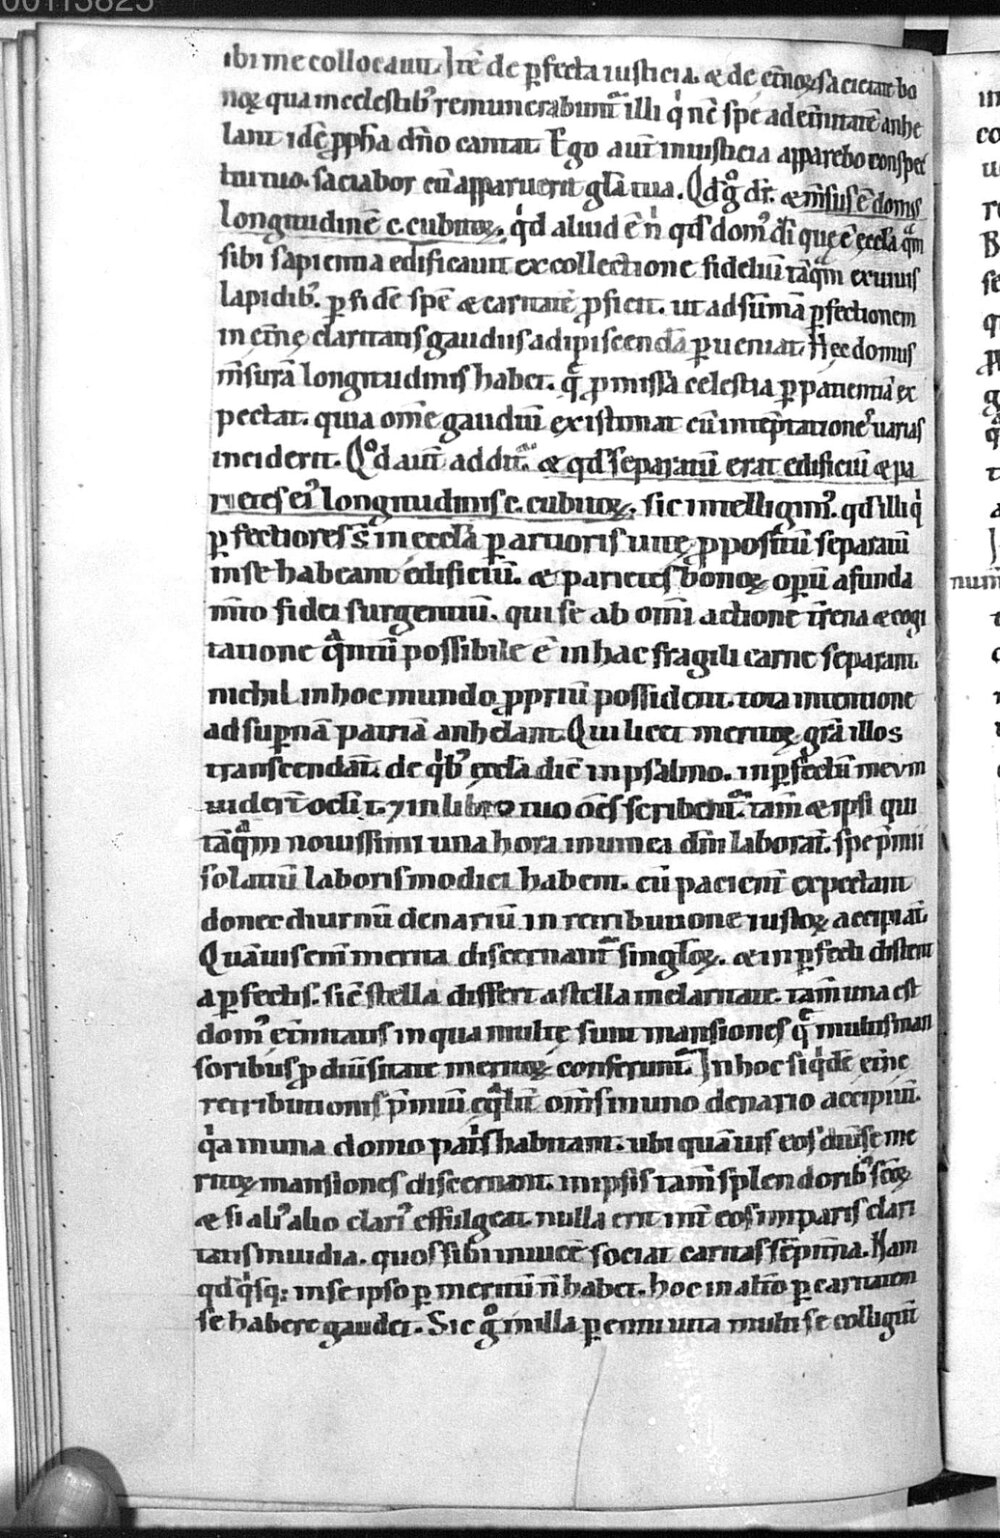 00113823
ibi me collocauit. Itē de ꝑfecta iusticia. & de et̄noꝝ sacietate bo
noꝝ qua in celestib⁹ remunerabunt᷑ illi qͥ nc̄ spe ad et̄nitatē anhe
lant idē ꝓph̄a dn̄o cantat. Ego aut̄ in iusticia apparebo conspec
tui tuo. saciabor cū apparuerit gl̄a tua. Qd̄ gͦ dr̄. & m̄sus ē domus
longitudinē c. cubitoꝝ. qͥd aliud ē nͥ qd̓ dom⁹ di̅ quę ē ęccl̄a qͣm
sibi sapientia edificauit ex collectione fideliū tāqͣm ex uiuis
lapidib⁹. ꝑ fidē spē & caritatē ꝓficit. ut ad sūmā ꝑfectionem
in et̄nę claritatis gaudiis adipiscenda ꝑueniat. Hęc domus
m̄surā longitudinis habet. qͣ ꝓmissa celestia ꝑ patientiā ex
pectat. quia om̄e gaudiū existimat cū in tēptatione⁹ uarias
inciderit. Qͦd aut̄ addit᷑. & qd̓ separatū erat edificiū & pa
rietes ei⁹ longitudinis c. cubitoꝝ. sic intelligim⁹. qd̓ illi qͥ
ꝑfectiores s̄ in eccl̄a ꝑ artioris uitę ꝓpositū separatū
in se habeant edificiū. & parietes bonoꝝ operū a funda
m̄to fidei surgentiū. qui se ab om̄i actione tr̄ena & cogi
tatione qͣntū possibile ē in hac fragili carne separant.
nichil in hoc mundo ꝓpriū possident. tota intentione
ad suꝑnā patriā anhelant. Qui licet meritoꝝ gr̄a illos
transcendāt. de qͥb⁹ eccl̄a dic̄ in psalmo. inꝑfectū meum
uider̄t oc̄li t. ⁊ in libro tuo oēs scribent᷑. tam̄ & ipsi qui
tāqͣm nouissimi una hora in uinea dn̄i laborāt. spe p̄mii
solatiū laboris modici habent. cū pacient᷑ expectant
donec diurnū denariū in retributione iustoꝝ accipiāt.
Quāuis enī merita discernant᷑ singl̄oꝝ. & inꝑfecti distent
a ꝑfectis. sic̄ stella differt a stella in claritate. tam̄ una est
dom⁹ et̄nitatis in qua multę sunt mansiones qͣ multis man
soribus ꝓ diūsitate meritoꝝ conferunt᷑. In hoc siqͥdē et̄nę
retributionis p̄miū eqͣlit̄ om̄s in uno denario accipiūt.
qͥa in una domo pat̓s habitant. ubi quāuis eos diūse me
ritoꝝ mansiones discernant. in ipsis tam̄ splendorib⁹ sc̄oꝝ
& si ali⁹ alio clari⁹ effulgeat. nulla erit int̄ eos imparis clari
tatis inuidia. quos sibi inuicē sociat caritas sēpit̄na. Nam
qd̓ qͥsq; in se ipso ꝑ meritū n̄ habet. hoc in alio ꝑ caritatem
se habere gaudet. Sic gͦ in illa ꝑenni uita multi se colligūt